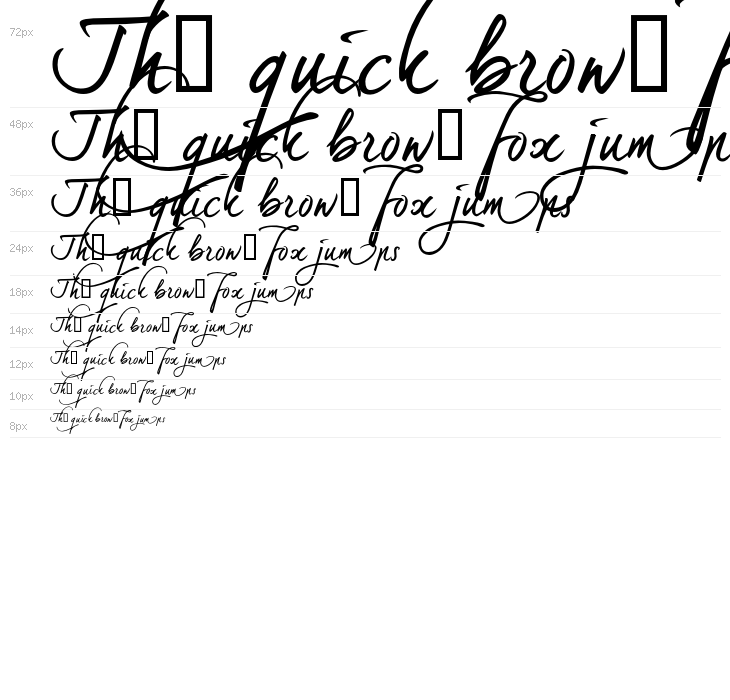 72px Th▯ quick brow▯
48px Th▯ quick brow▯ fox jump
36px Th▯ quick brow▯ fox jumps
24px Th▯ quick brow▯ fox jumps
18px Th▯ quick brow▯ fox jumps
14px Th▯ quick brow▯ fox jumps
12px Th▯ quick brow▯ fox jumps
10px Th▯ quick brow▯ fox jumps
8px Th▯ quick brow▯ fox jumps